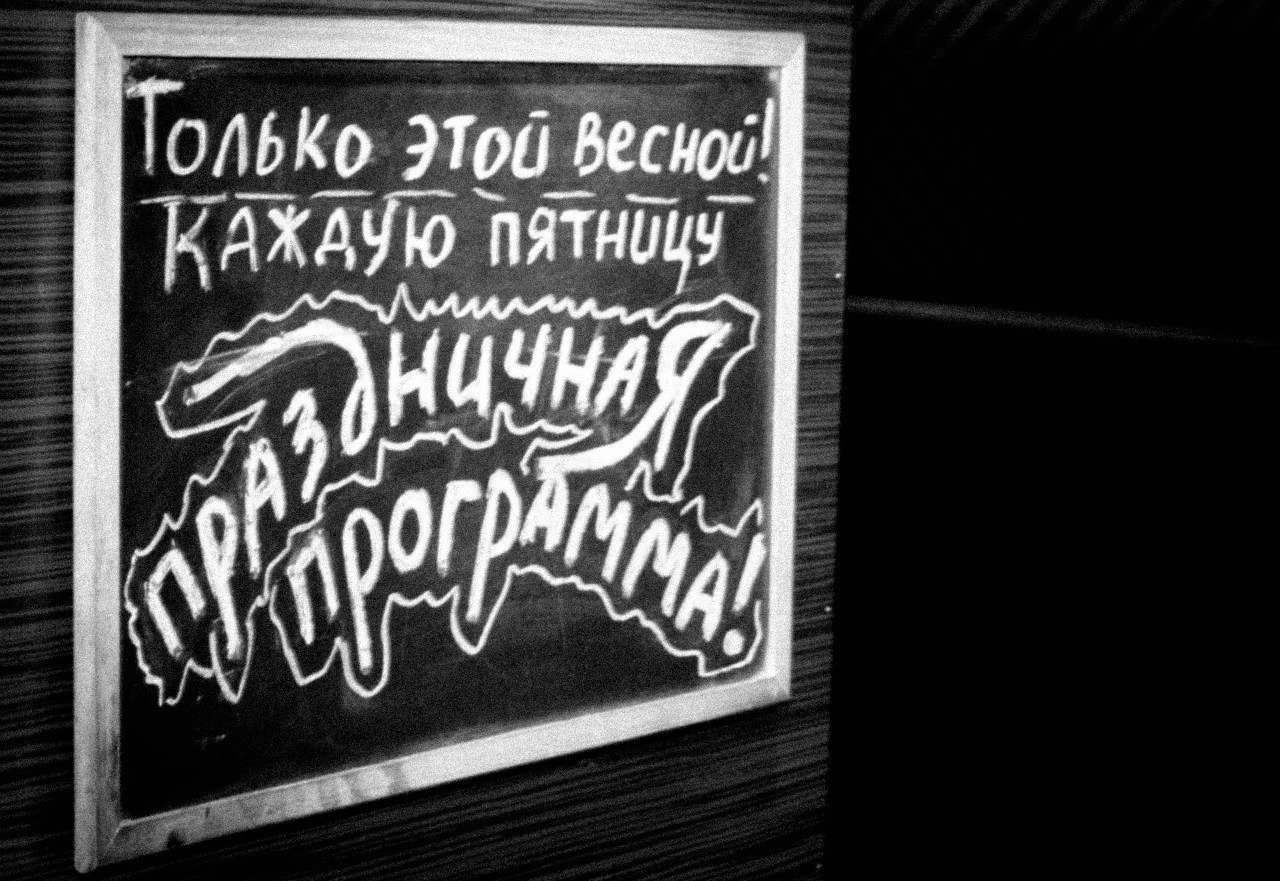 Только этой весной!
Каждую пятницу
праздничная
программа!